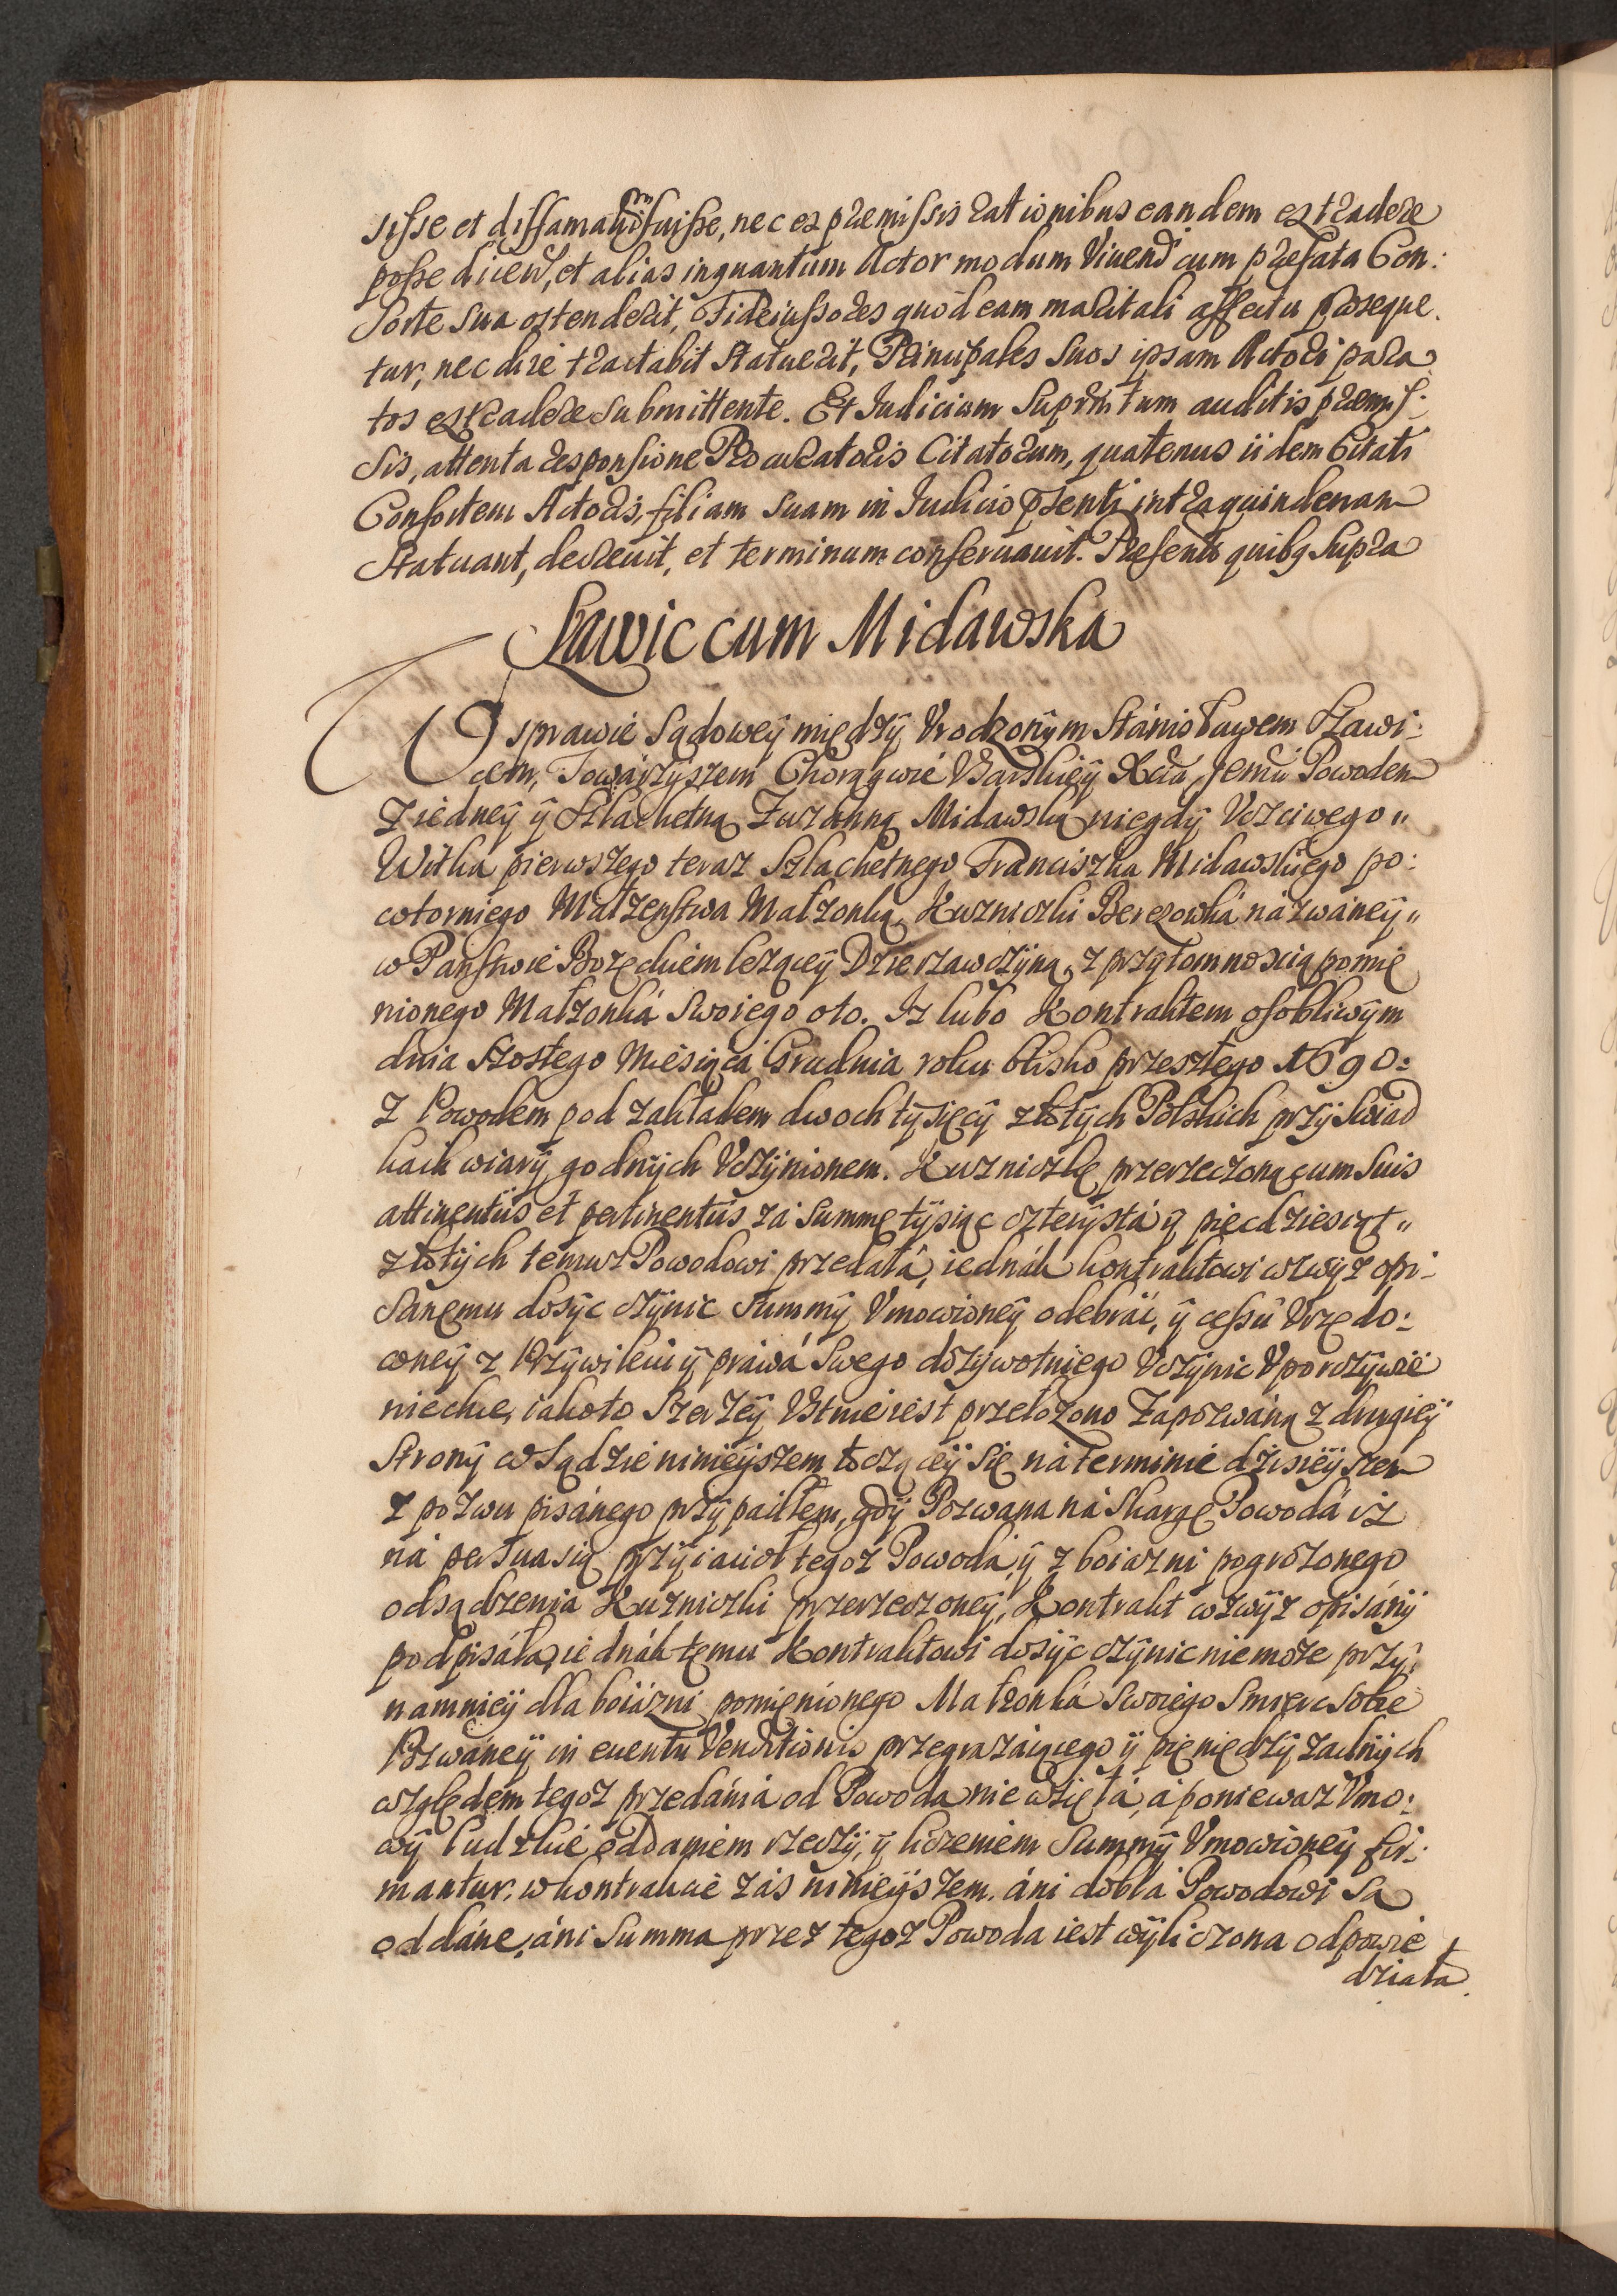 sisse et diffamatam fuisse, nec ex præmissis rationibus eandem extradere
posse dicen, et alias inquantum Actor modum Viuendi cum præfata Con:
sorte sua ostenderit, Fideiussores quod eam maritali affectu proseque
tur, nec dire tractabit Statuerit, Principales suos ipsam Actori para
tos extradere submittente. Et Judicium Suprmtum auditis præmis:
sis, attenta responsione Procuratoris Citatorum, quatenus iidem Citati
Consortem Actoris, filiam suam in Judicio psenti intra quindenam
Statuant, decreuit, et terminum conseruauit. Presentib quibg Supra
Sławic cum Midawska
W sprawie Sądoweÿ międzÿ Vrodzonÿm Stánisławem Sławi:
cem, Towarzÿszem Chorągwie Vsarskieÿ Xcia Jemci Powodem
z iedneÿ ÿ Szlachetną Zuzanną Midawską niegdÿ Vczciwego
Witka pierwszego teraz Szlachetnego Franciszka Midawskiego po:
wtorniego Małzenstwa Małzonką, Kuzniczki Berezowka názwáneÿ
w Panstwie Bozęckiem lezącÿ Dzierzawczÿną, z przytomnoscią pomie
nionego Małzonká Swoiego oto. Iz lubo Kontraktem osobliwÿm
dnia Szostego Miesiącá Grudnia roku blisko przeszłego 1690:
z Powodem pod zakładem dwoch tÿsięcÿ złotÿch Polskich przÿ Swiad
kach wiarÿ godnÿch Vczÿnionem. Kuzniczkę przerzeczoną cum suis
attinentiis et pertinentiis zá Summę tÿsiąc czterÿstá ÿ piędziesiąt
złotÿch temuz Powodowi przedałá, iednák kontraktowi wzwÿz opi:
sanemu dosÿc czÿnic Summÿ Vmowioneÿ odebrác, ÿ cessiÿ Vrzędo:
woneÿ z Przÿwileiu ÿ práwá Swego dozÿwotniego Vczÿnic Vporczÿwie
niechce, iakoto szerzeÿ Vstnie iest przełozono Zapozwáną z drugieÿ
Stronÿ w Sądzie ninieÿszem toczącÿ się ná terminie dzisieÿszem
z pozwu pisánego przÿpadłem, gdÿ Pozwana ná Skargę Powodá iz
ná persuasią przÿiaciół tegoz Powodá ÿ z boiazni pogrozonego
odsądzenia Kuzniczki przerzeczoneÿ, Kontrakt wzwÿz opisánÿ
podpisáła, iednák temu Kontraktowi dosÿc czÿnic nie moze przÿ:
namnieÿ dla boiázni pomienionego Małzonká Swoiego Smierc Sobie
Pozwáneÿ in euentu Venditionis przegrazaiącego ÿ pieniędzÿ zadnÿch
względem tegoz przedánia od Powoda nie wzięłá, á poniewaz Vmo:
wÿ ludzkie oddaniem rzeczÿ, ÿ liczeniem Summÿ Vmowioneÿ fir:
mantur, w kontrakcie zás ninieÿszem, áni dobrá Powodowi są
oddáne, áni Summa przez tegoz Powoda iest wÿliczona odpowie
działa.